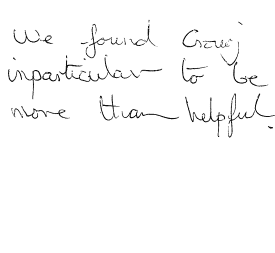 We found Craig
inparticular to be
more than helpful.